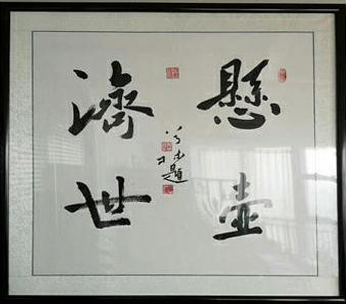 懸壺
濟世
題